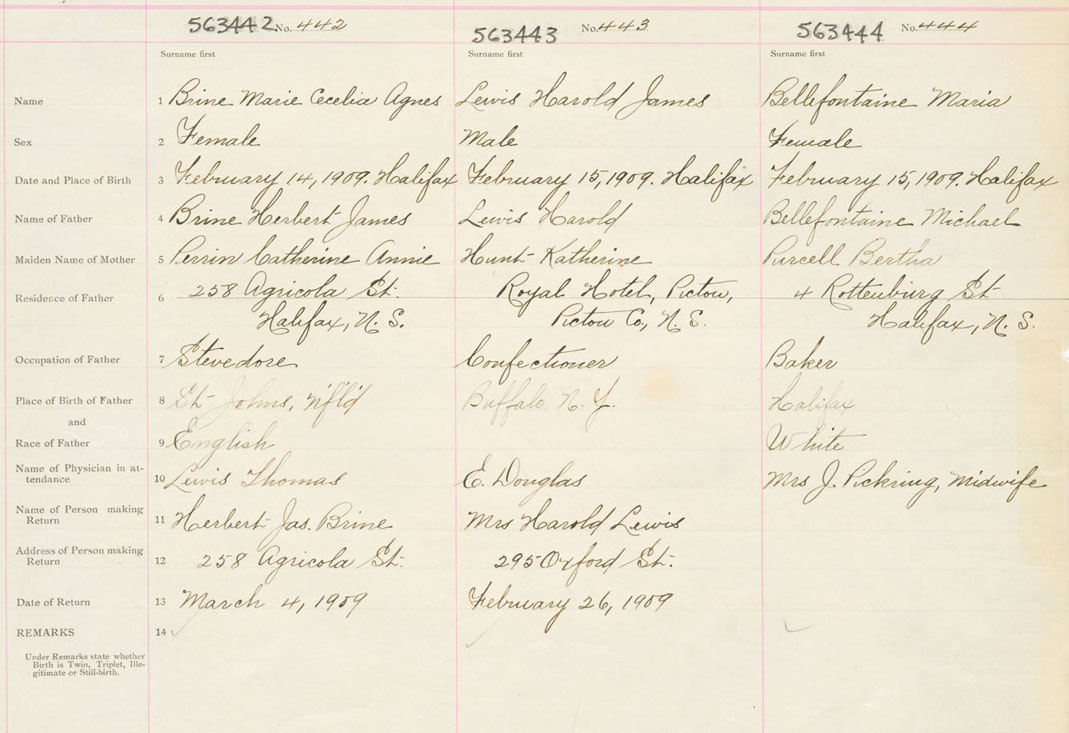 563442 No. 442 563443 No. 443 563444 No. 444
Surname first Surname first Surname first
Name 1 Brine Marie Cecelia Agnes Lewis Harold James Bellefontaine Maria
Sex 2 Female Male Female
Date and Place of Birth 3 February 14, 1909. Halifax February 15, 1909. Halifax February 15, 1909. Halifax
Name of Father 4 Brine Herbert James Lewis Harold Bellefontaine Michael
Maiden Name of Mother 5 Perrin Catherine Annie Hunt Katherine Purcell Bertha
Residence of Father 6 258 Agricola St. Royal Hotel, Pictou, 4 Rottenburg St
Halifax, N. S. Pictou Co., N. S. Halifax, N. S.
Occupation of Father 7 Stevedore Confectioner Baker
Place of Birth of Father 8 St Johns, Nfl'd Buffalo, N. Y. Halifax
and
Race of Father 9 English White
Name of Physician in at-
tendance 10 Lewis Thomas E. Douglas Mrs J. Pickring, Midwife
Name of Person making
Return 11 Herbert Jas. Brine Mrs Harold Lewis
Address of Person making
Return 12 258 Agricola St. 295 Oxford St.
Date of Return 13 March 4, 1909 February 26, 1909
REMARKS 14
Under Remarks state whether
Birth is Twin, Triplet, Ille-
gitimate or Still-birth.